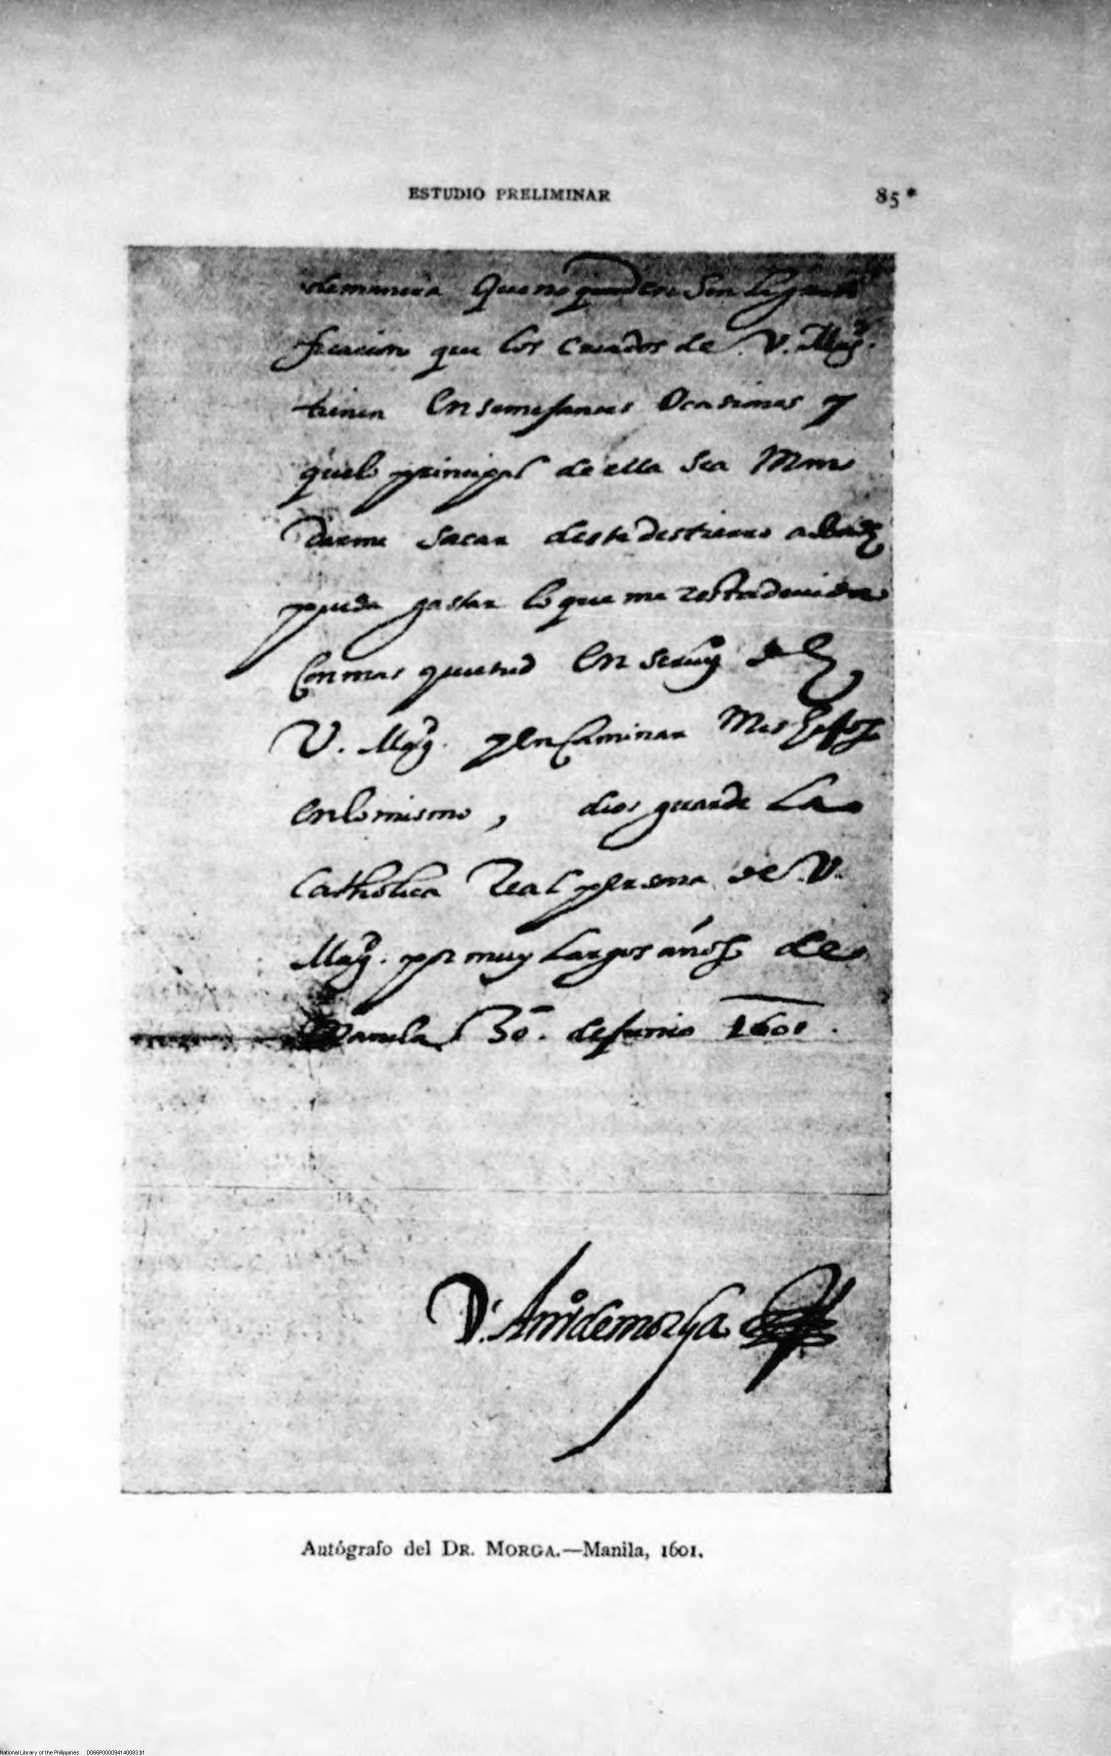 ESTUDIO PRELIMINAR 85*
demanera que no queden sin la grati
ficacion que los criados de V. Magd.
tienen en semejantes ocasiones y
quelo principal de ella sea man
darme sacar deste destierro a donde
pueda gastar lo que me resta de vida
con mas quietud en servio de
V. Magd. y encaminar mis hijos
enlo mismo, dios guarde la
catholica Real persona de V.
Magd. por muy largos años de
Manila 30. de junio 1601.
Dr. Anto de morga
Autógrafo del DR. MORGA.—Manila, 1601.
National Library of the Philippines